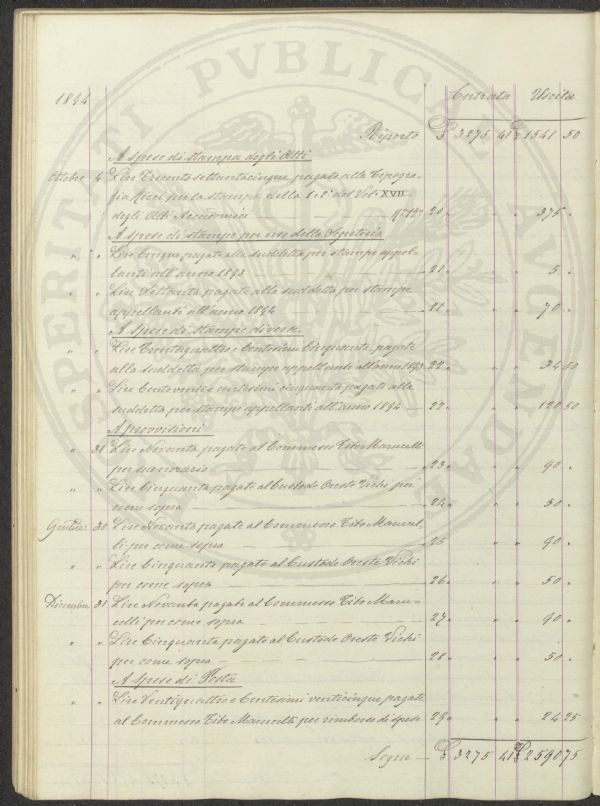 PROSPERITATI PVBLICAE AVGENDAE
1894 Entrata Uscita
Riporto £ 3275 41 £ 1541 50
A spese di stampa degli Atti
Ottobre 4 Lire Trecento settantacinque pagate alla Tipogra-
fia Ricci per la stampa della 1 e 2a del Vol. XVII
degli Atti Accademici 20 " " " 375 "
A spese di stampe per uso della Segreteria
" " Lire Cinque pagate alla suddetta per stampe appel-
lanti all'anno 1893 21 " " " 5 "
" " Lire Settanta pagate alla suddetta per stampe
appellanti all'anno 1894 21 " " " 70 "
A Spese di Stampe diverse
" " Lire Trentaquattro e Centesimi Cinquanta pagate
alla suddetta per stampe appellanti all'anno 1893 22 " " " 34 50
" " Lire Centoventi e centesimi cinquanta pagate alla
suddetta per stampe appellanti all'anno 1894 22 " " " 120 50
A provvisioni
" 31 Lire Novanta pagate al Commesso Tito Marucelli
per suo onorario 23 " " " 90 "
" " Lire Cinquanta pagate al Custode Oreste Vichi per
come sopra 24 " " " 50 "
Novembre 30 Lire Novanta pagate al Commesso Tito Marucel-
li per come sopra 25 " " " 90 "
" " Lire Cinquanta pagate al Custode Oreste Vichi
per come sopra 26 " " " 50 "
Dicembre 31 Lire Novanta pagate al Commesso Tito Maru-
celli per come sopra 27 " " " 90 "
" " Lire Cinquanta pagate al Custode Oreste Vichi
per come sopra 28 " " " 50 "
A Spese di Posta
" " Lire Ventiquattro e Centesimi venticinque pagate
al Commesso Tito Marucelli per rimborso di spese 29 " " " 24 25
Segue £ 3275 41 £ 2590 75